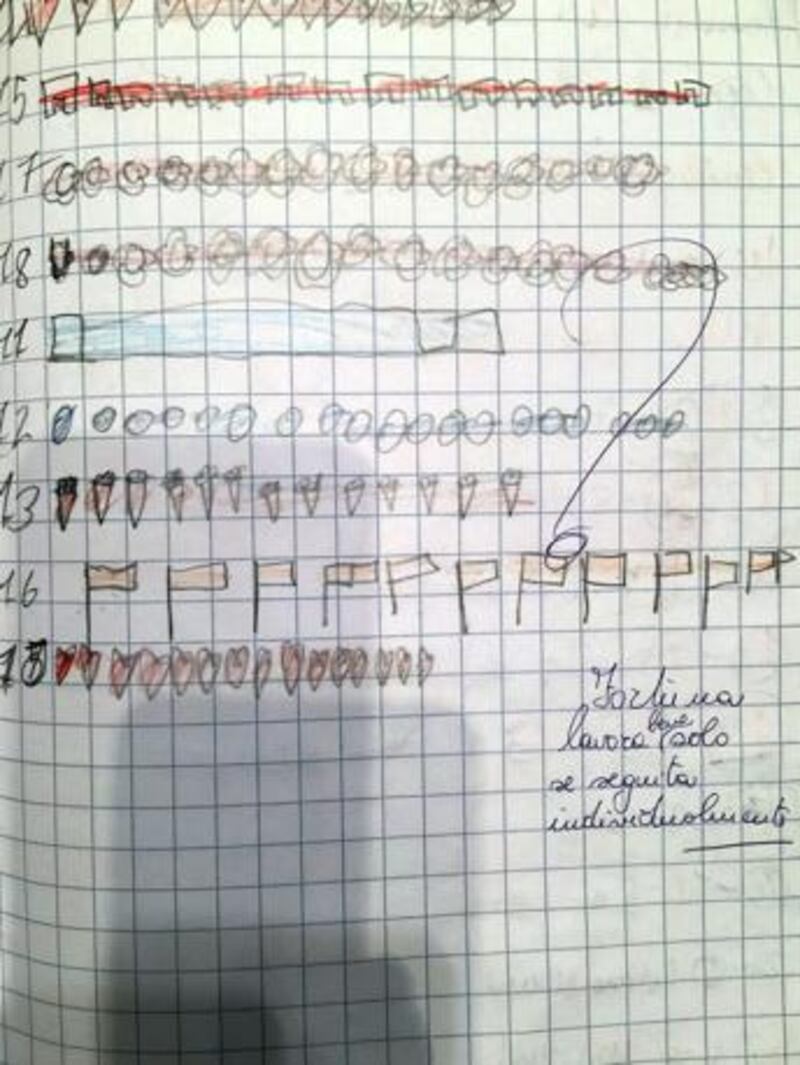 15
17
18
11
12
13
16
18
Fortuna
lavora bene solo
se seguita
individualmente